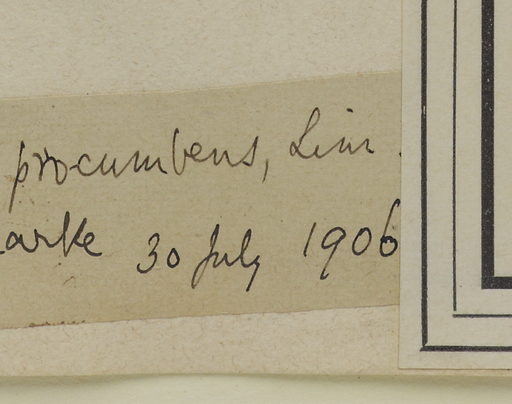 procumbens, Linn.
arke 30 July 1906